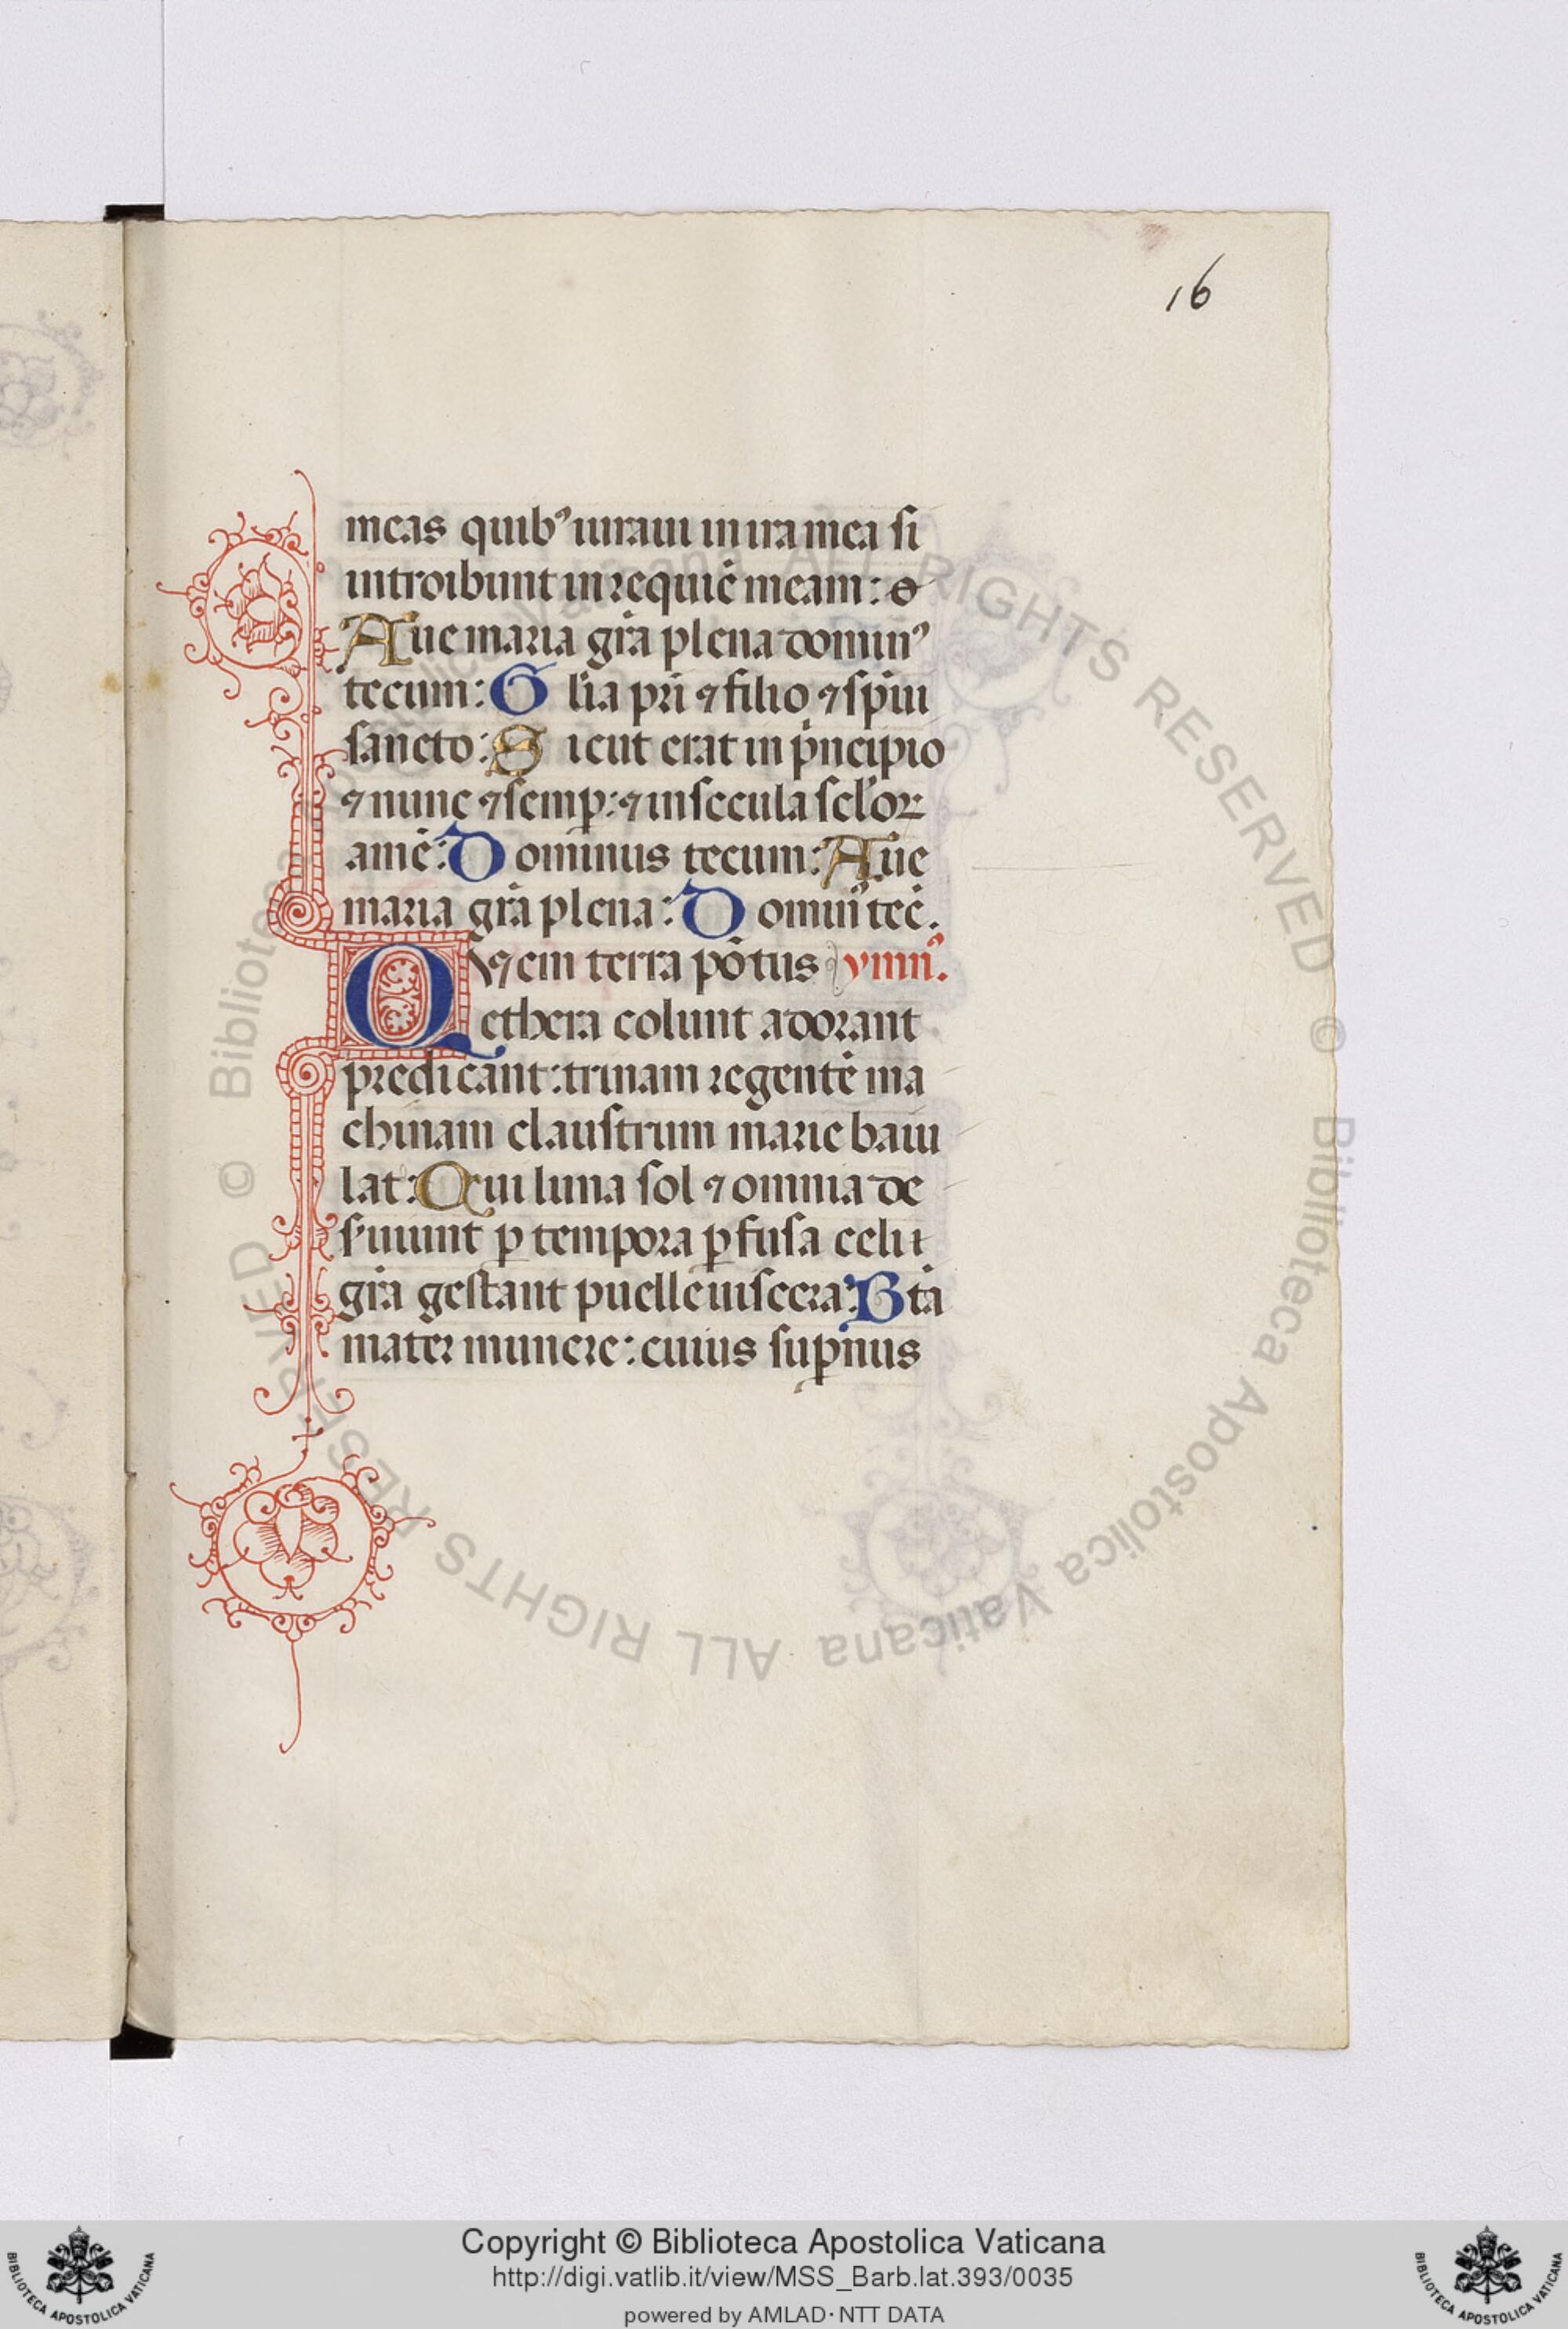 16
meas quibꝰ iuraui in ira mea si
introibunt in requiē meam: ꝋ
Aue maria grā plena dominꝰ
tecum: Glīa pri̅ ⁊ filio ⁊ spūi
sancto: Sicut erat in pͥncipio
⁊ nunc ⁊ semꝑ: ⁊ in secula sclo̅ꝝ
amē: Dominus tecum: Aue
maria grā plena: Domin̄ tec̄.
Quem terra pōtus ymnꝰ.
ethera colunt adorant
predicant: trinam regentē ma
chinam claustrum marie baiu
lat: Qui luna sol ⁊ omnia de
s̄uiunt ꝑ tempora ꝑfusa celi
grā gestant puelle uiscera: Btā
mater munere: cuius suꝑnus
© Biblioteca Apostolica Vaticana ALL RIGHTS RESERVED © Biblioteca Apostolica Vaticana ALL RIGHTS RESERVED
BIBLIOTECA APOSTOLICA VATICANA
Copyright © Biblioteca Apostolica Vaticana
http://digi.vatlib.it/view/MSS_Barb.lat.393/0035
powered by AMLAD · NTT DATA
BIBLIOTECA APOSTOLICA VATICANA